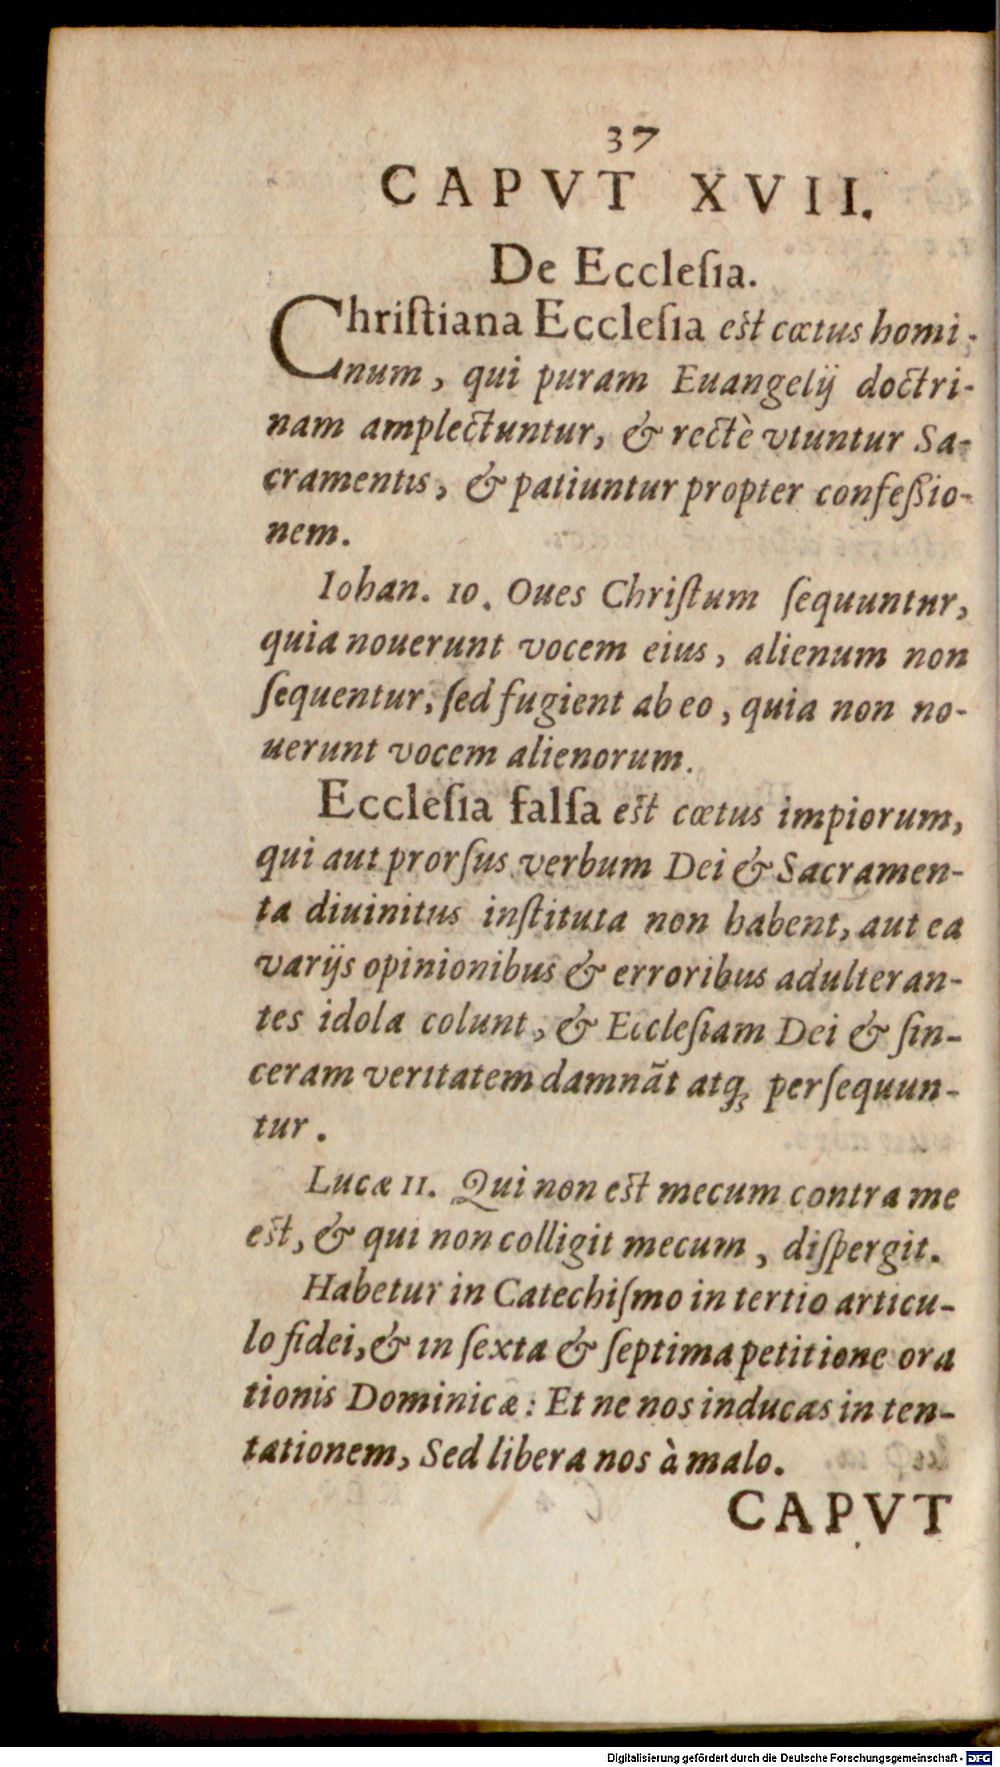 37
CAPVT XVII.
De Eccleſia.
Chriſtiana Eccleſia eſt cœtus homi-
num, qui puram Euangelij doctri-
nam amplectuntur, & rectè vtuntur Sa-
cramentis, & patiuntur propter confeßio-
nem.
Iohan. 10. Oues Chriſtum ſequuntur,
quia nouerunt vocem eius, alienum non
ſequentur, ſed fugient ab eo, quia non no-
uerunt vocem alienorum.
Eccleſia falſa eſt cœtus impiorum,
qui aut prorſus verbum Dei & Sacramen-
ta diuinitus inſtituta non habent, aut ea
varijs opinionibus & erroribus adulteran-
tes idola colunt, & Eccleſiam Dei & ſin-
ceram veritatem damnãt atq́; perſequun-
tur.
Lucæ 11. Qui non eſt mecum contra me
eſt, & qui non colligit mecum, diſpergit.
Habetur in Catechiſmo in tertio articu-
lo fidei, & in ſexta & ſeptima petitione ora
tionis Dominicæ: Et ne nos inducas in ten-
tationem, Sed libera nos à malo.
CAPVT
Digitalisierung gefördert durch die Deutsche Forschungsgemeinschaft - DFG